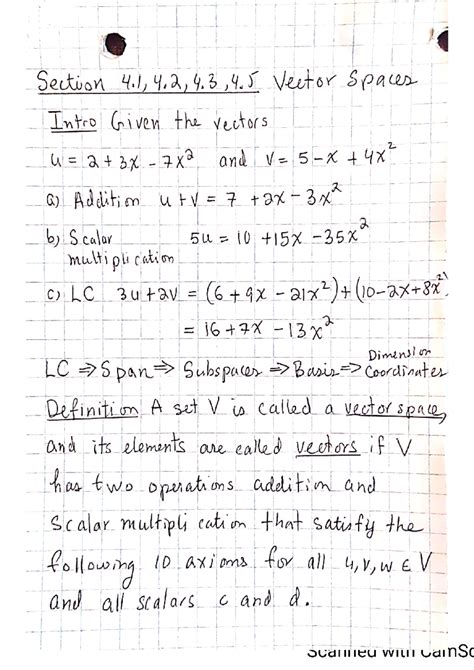 Section 4.1, 4.2, 4.3, 4.5 Vector Spaces
Intro Given the vectors
u = 2 + 3x - 7x² and v = 5 - x + 4x²
a) Addition u + v = 7 + 2x - 3x²
b) Scalar multiplication 5u = 10 + 15x - 35x²
c) LC 3u + 2v = (6 + 9x - 21x²) + (10 - 2x + 8x²)
= 16 + 7x - 13x²
LC ⇒ Span ⇒ Subspaces ⇒ Basis ⇒ Dimension Coordinates
Definition A set V is called a vector space,
and its elements are called vectors if V
has two operations addition and
Scalar multiplication that satisfy the
following 10 axioms for all u, v, w ∈ V
and all scalars c and d.
Scanned with CamSc